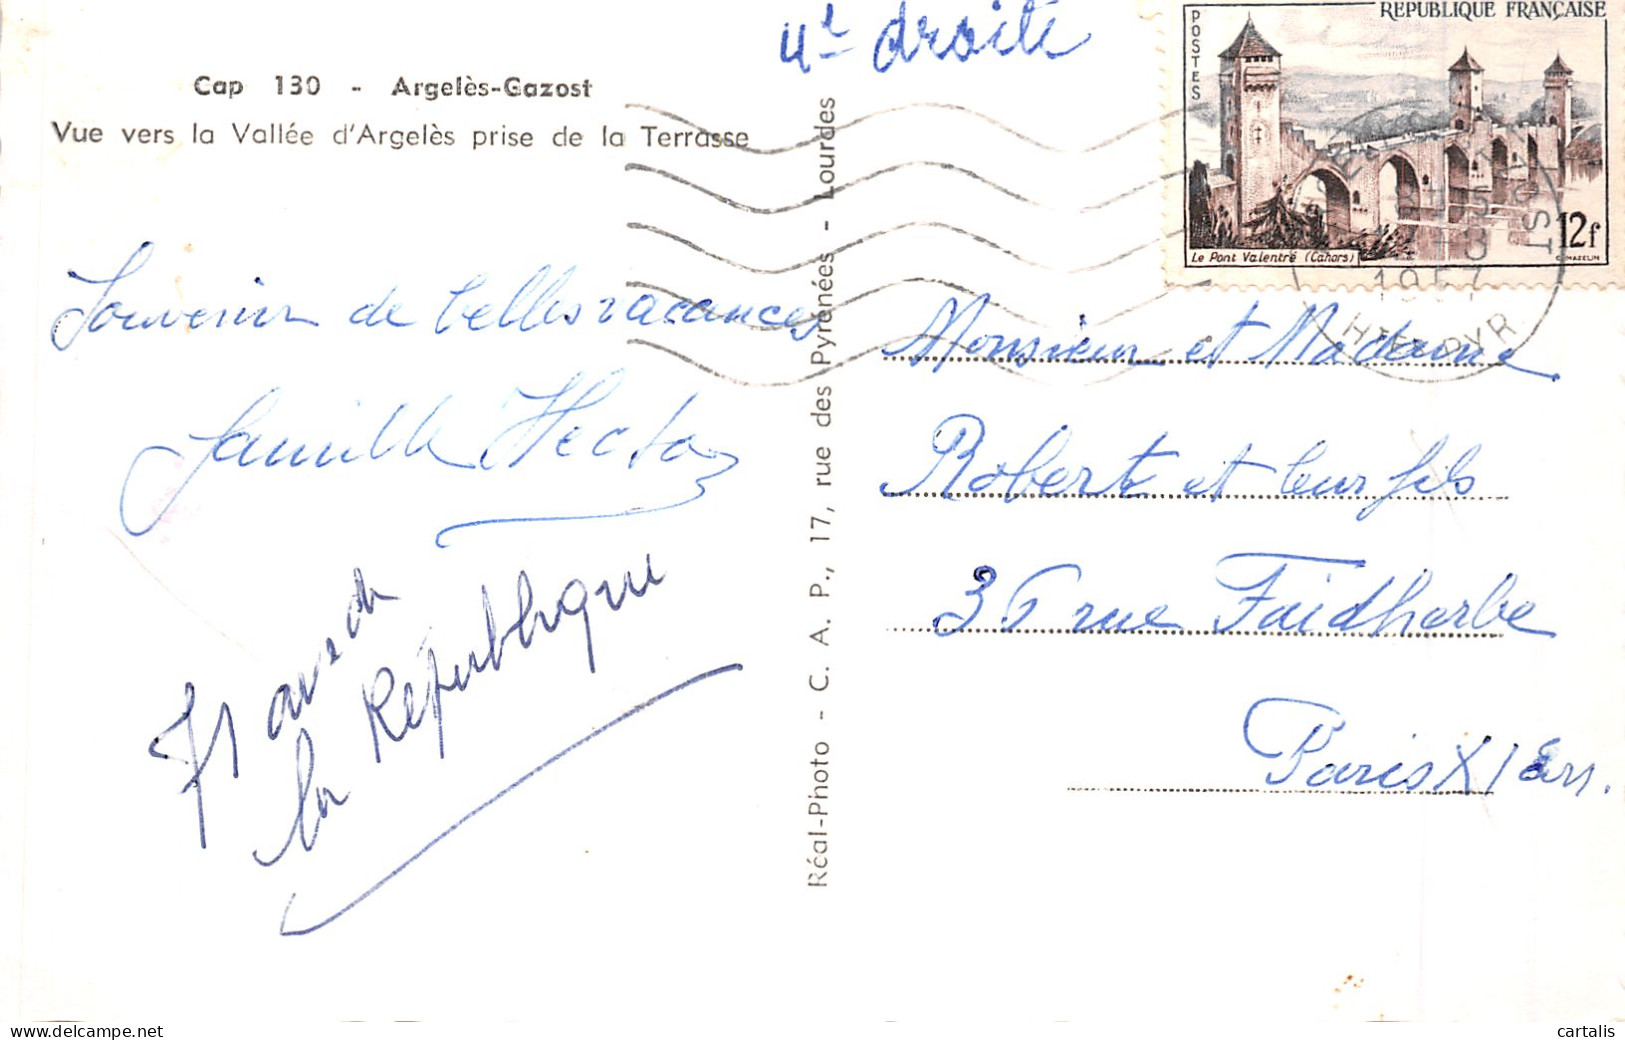 Cap 130 - Argelès-Gazost
Vue vers la Vallée d'Argelès prise de la Terrasse
Souvenir de belles vacances
famille Hecta
av de
la République
Réal-Photo - C. A. P., 17, rue des Pyrénées - Lourdes
4e droite
POSTES
REPUBLIQUE FRANÇAISE
12f
Le Pont Valentré (Cahors)
C. MAZELIN
1957
HTES PYR
Monsieur et Madame
Robert et leur fils
36 rue Faidherbe
Paris XI Em.
cartalis